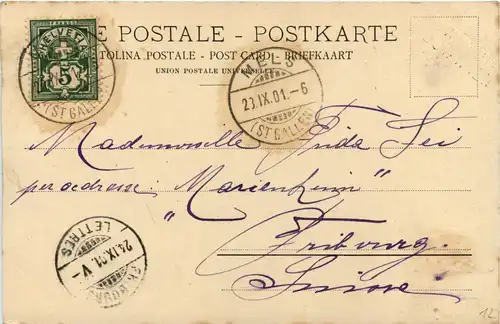 E POSTALE - POSTKARTE
TOLINA POSTALE - POST CARD - BRIEFKAART
UNION POSTALE UNIVERSELLE
HELVETIA
5
(ST GALLEN)
MELS
23.IX.01.-6
(ST GALLEN)
Mademoiselle Frida
per adresse: "Marienheim"
Fribourg.
Suisse.
24.IX.01. V-
LETTRES
FRIBOURG
12